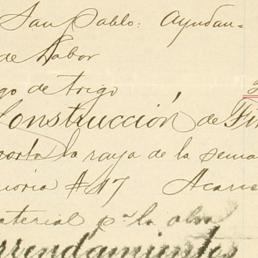 San Pablo: Ayudan=
de Labor
go de trigo
Construcción de Fin
porta la raya de la sema
moria #17 Acarr
material pa la obra
rrendamientos